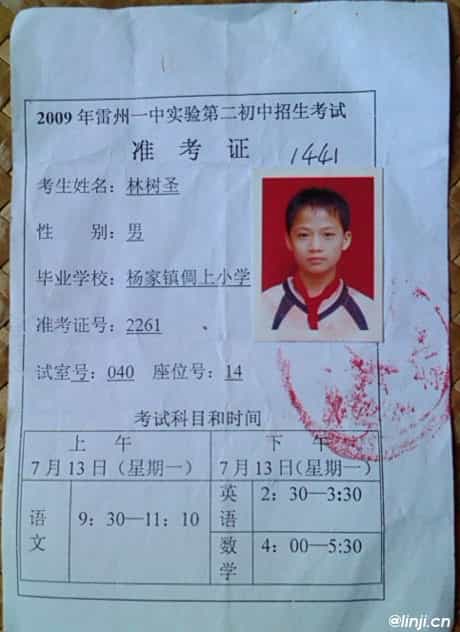 2009年雷州一中实验第二初中招生考试
准 考 证
1441
考生姓名：林树圣
性 别：男
毕业学校：杨家镇倜上小学
准考证号：2261
试室号：040 座位号：14
考试科目和时间
上 午
7月13日（星期一）
下 午
7月13日（星期一）
语文
9：30—11：10
英语
2：30—3:30
数学
4：00—5:30
@linji.cn